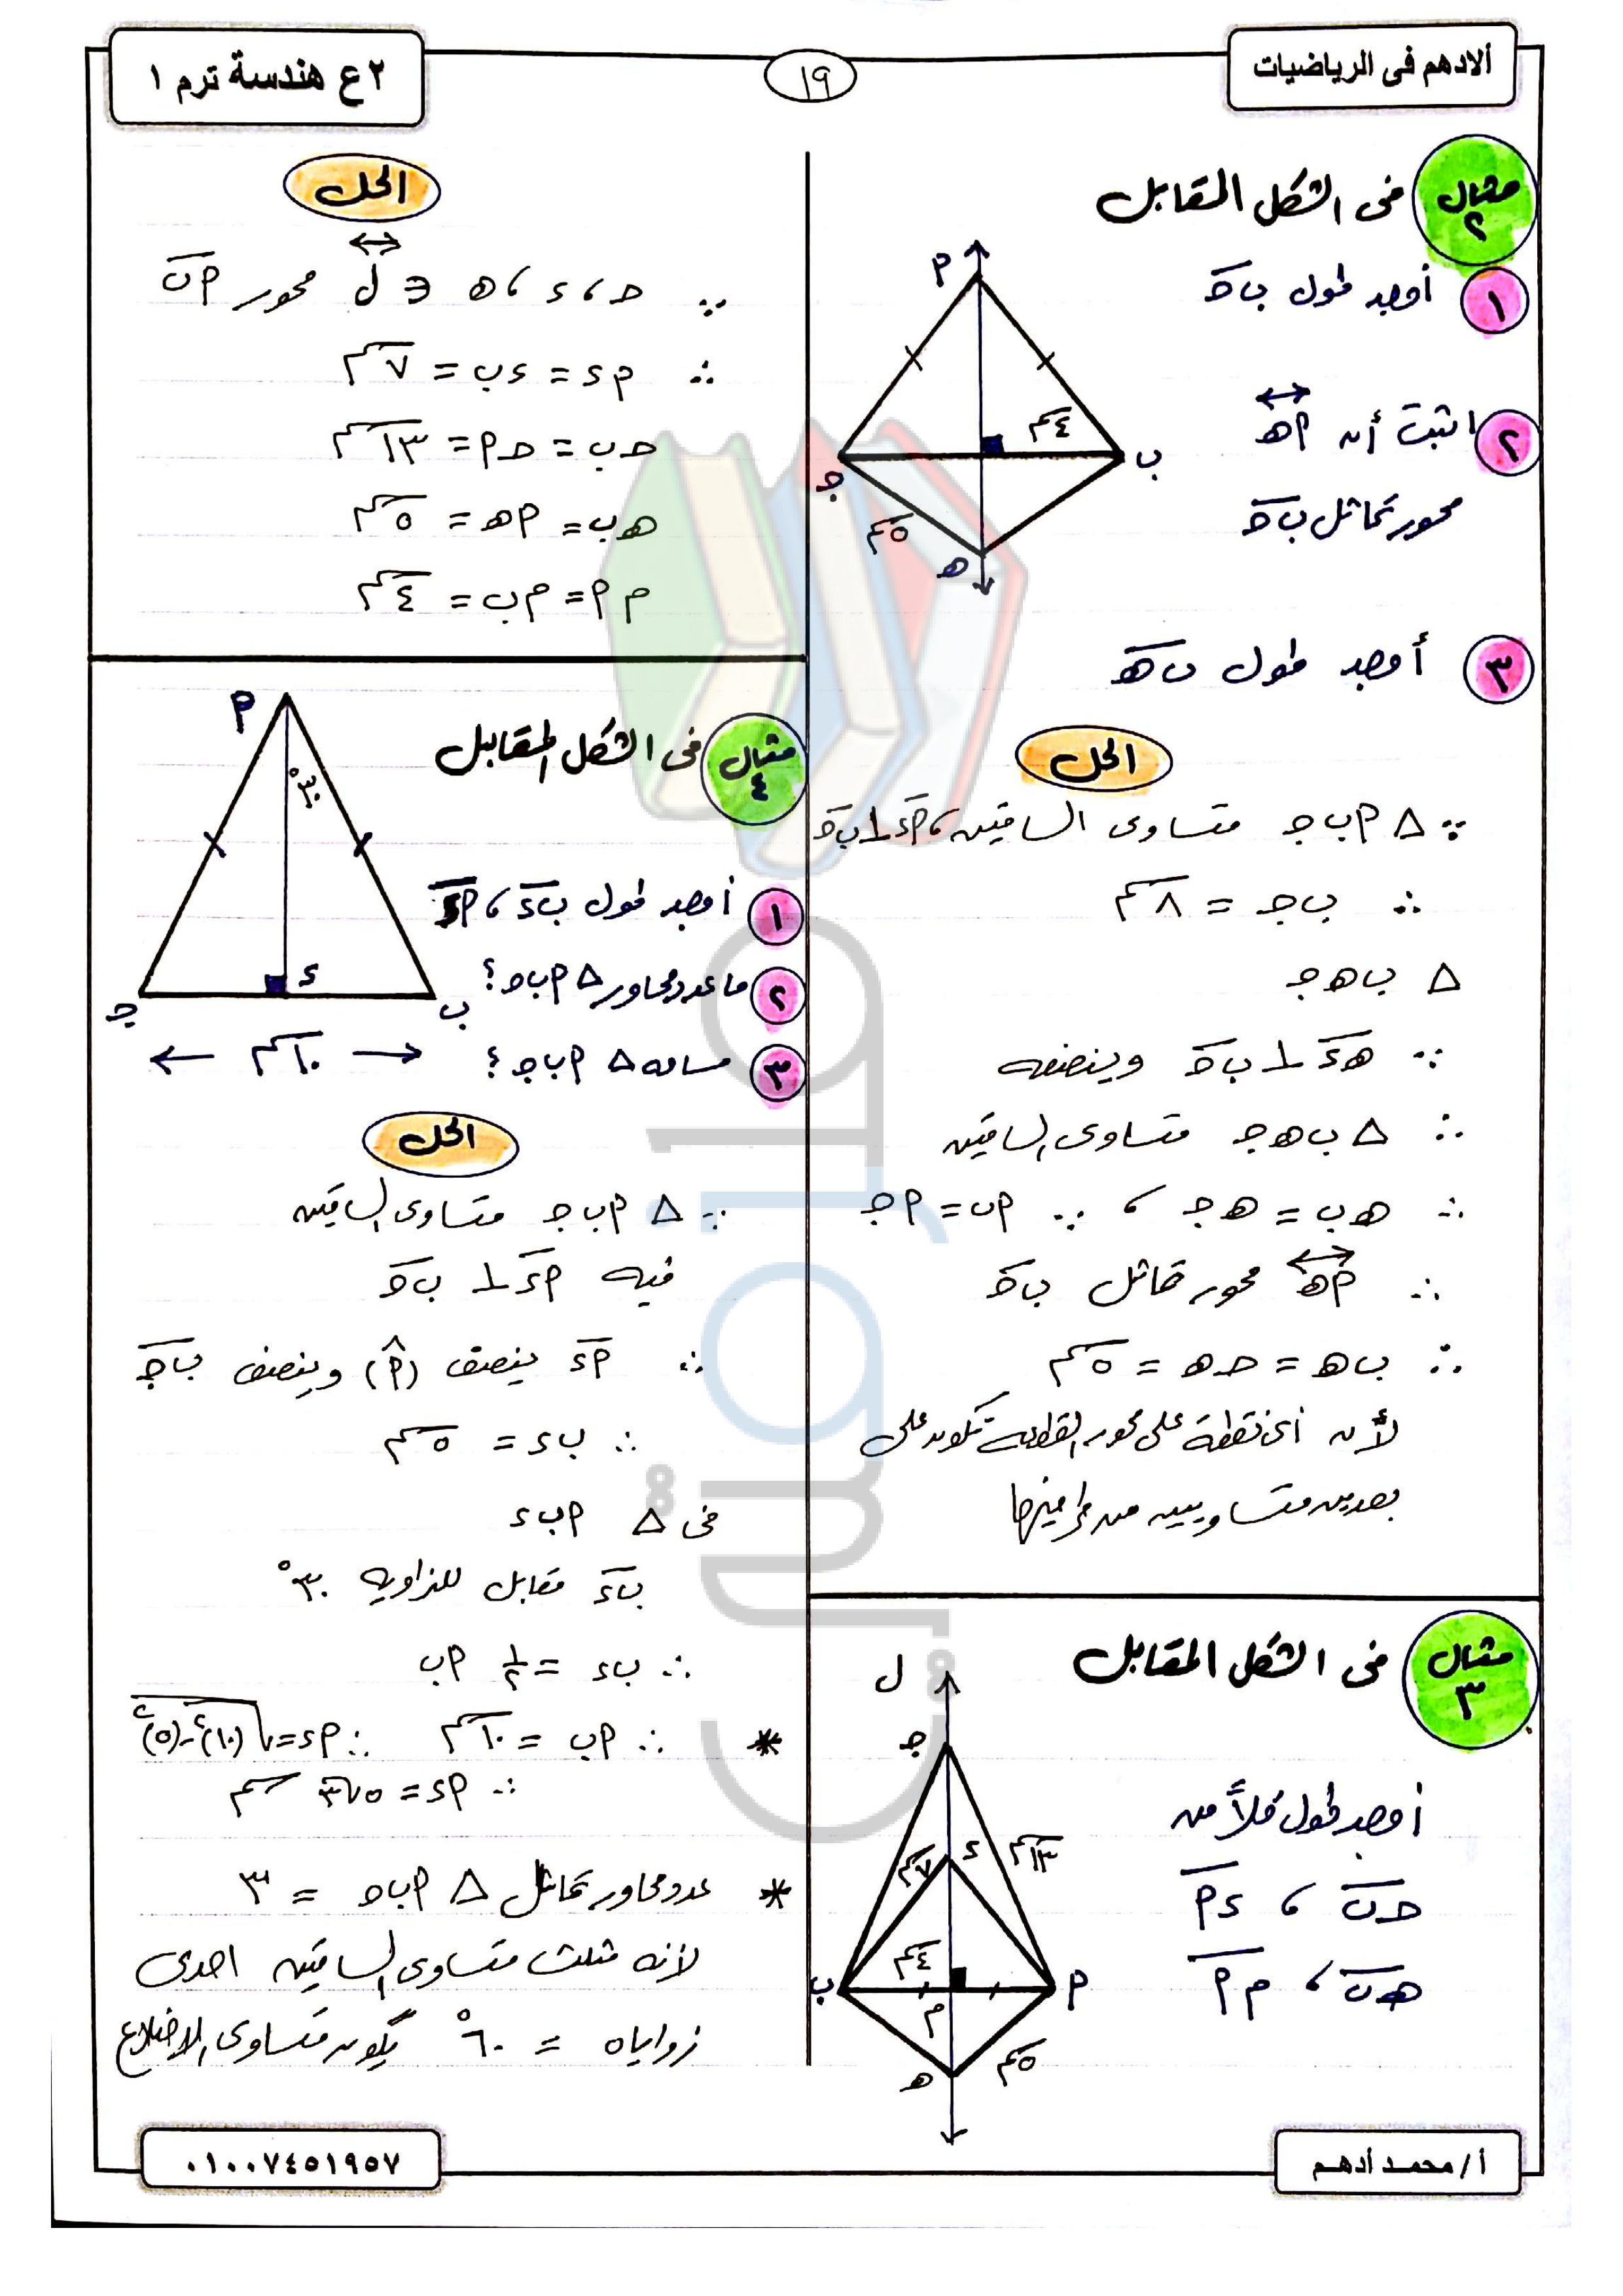 ألادهم فى الرياضيات
١٩
٢ع هندسة ترم ١
مثال ٢ فى الشكل المقابل
١ أوجد طول ب جـ
٢ اثبت أن أ هـ
محور تماثل ب جـ
٣ أوجد طول ب هـ
أ
٤سم
ب
جـ
٥سم
هـ
الحل
∵ △ أ ب جـ متساوى الساقين ، أ ء ⊥ ب جـ
∴ ب جـ = ٨سم
△ ب هـ جـ
∵ هـ ء ⊥ ب جـ وينصفه
∴ △ ب هـ جـ متساوى الساقين
∴ هـ ب = هـ جـ ، ∵ أ ب = أ جـ
∴ أ هـ محور تماثل ب جـ
∴ ب هـ = جـ هـ = ٥سم
لأن أى نقطة على محور القطعة تكون على
بعدين متساويين من طرفيها
مثال ٣ فى الشكل المقابل
أوجد طول كلاً من
جـ ب ، ء أ
هـ ب ، م أ
ل
جـ
ء
٧سم
١٣سم
٤سم
ب
أ
م
٥سم
هـ
الحل
∵ جـ ، ء ، هـ ∈ ل محور أ ب
∴ أ ء = ء ب = ٧سم
جـ ب = جـ أ = ١٣سم
هـ ب = أ هـ = ٥سم
م أ = م ب = ٤سم
مثال ٤ فى الشكل المقابل
١ أوجد طول ب ء ، أ ء
٢ ما عدد محاور △ أ ب جـ ؟
٣ مساحه △ أ ب جـ ؟
أ
٣٠°
ء
جـ
ب
١٠سم
الحل
∵ △ أ ب جـ متساوى الساقين
فيه أ ء ⊥ ب جـ
∴ أ ء ينصف (أ) وينصف ب جـ
∴ ب ء = ٥سم
فى △ أ ب ء
ب ء مقابل للزاويه ٣٠°
∴ ب ء = ١/٢ أ ب
* ∴ أ ب = ١٠سم ∴ أ ء = √(١٠)²-(٥)²
∴ أ ء = ٥√٣ سم
* عدد محاور تماثل △ أ ب جـ = ٣
لأنه مثلث متساوى الساقين احدى
زواياه = ٦٠° يكون متساوى الاضلاع
أ/ محمد أدهم
٠١٠٠٧٤٥١٩٥٧